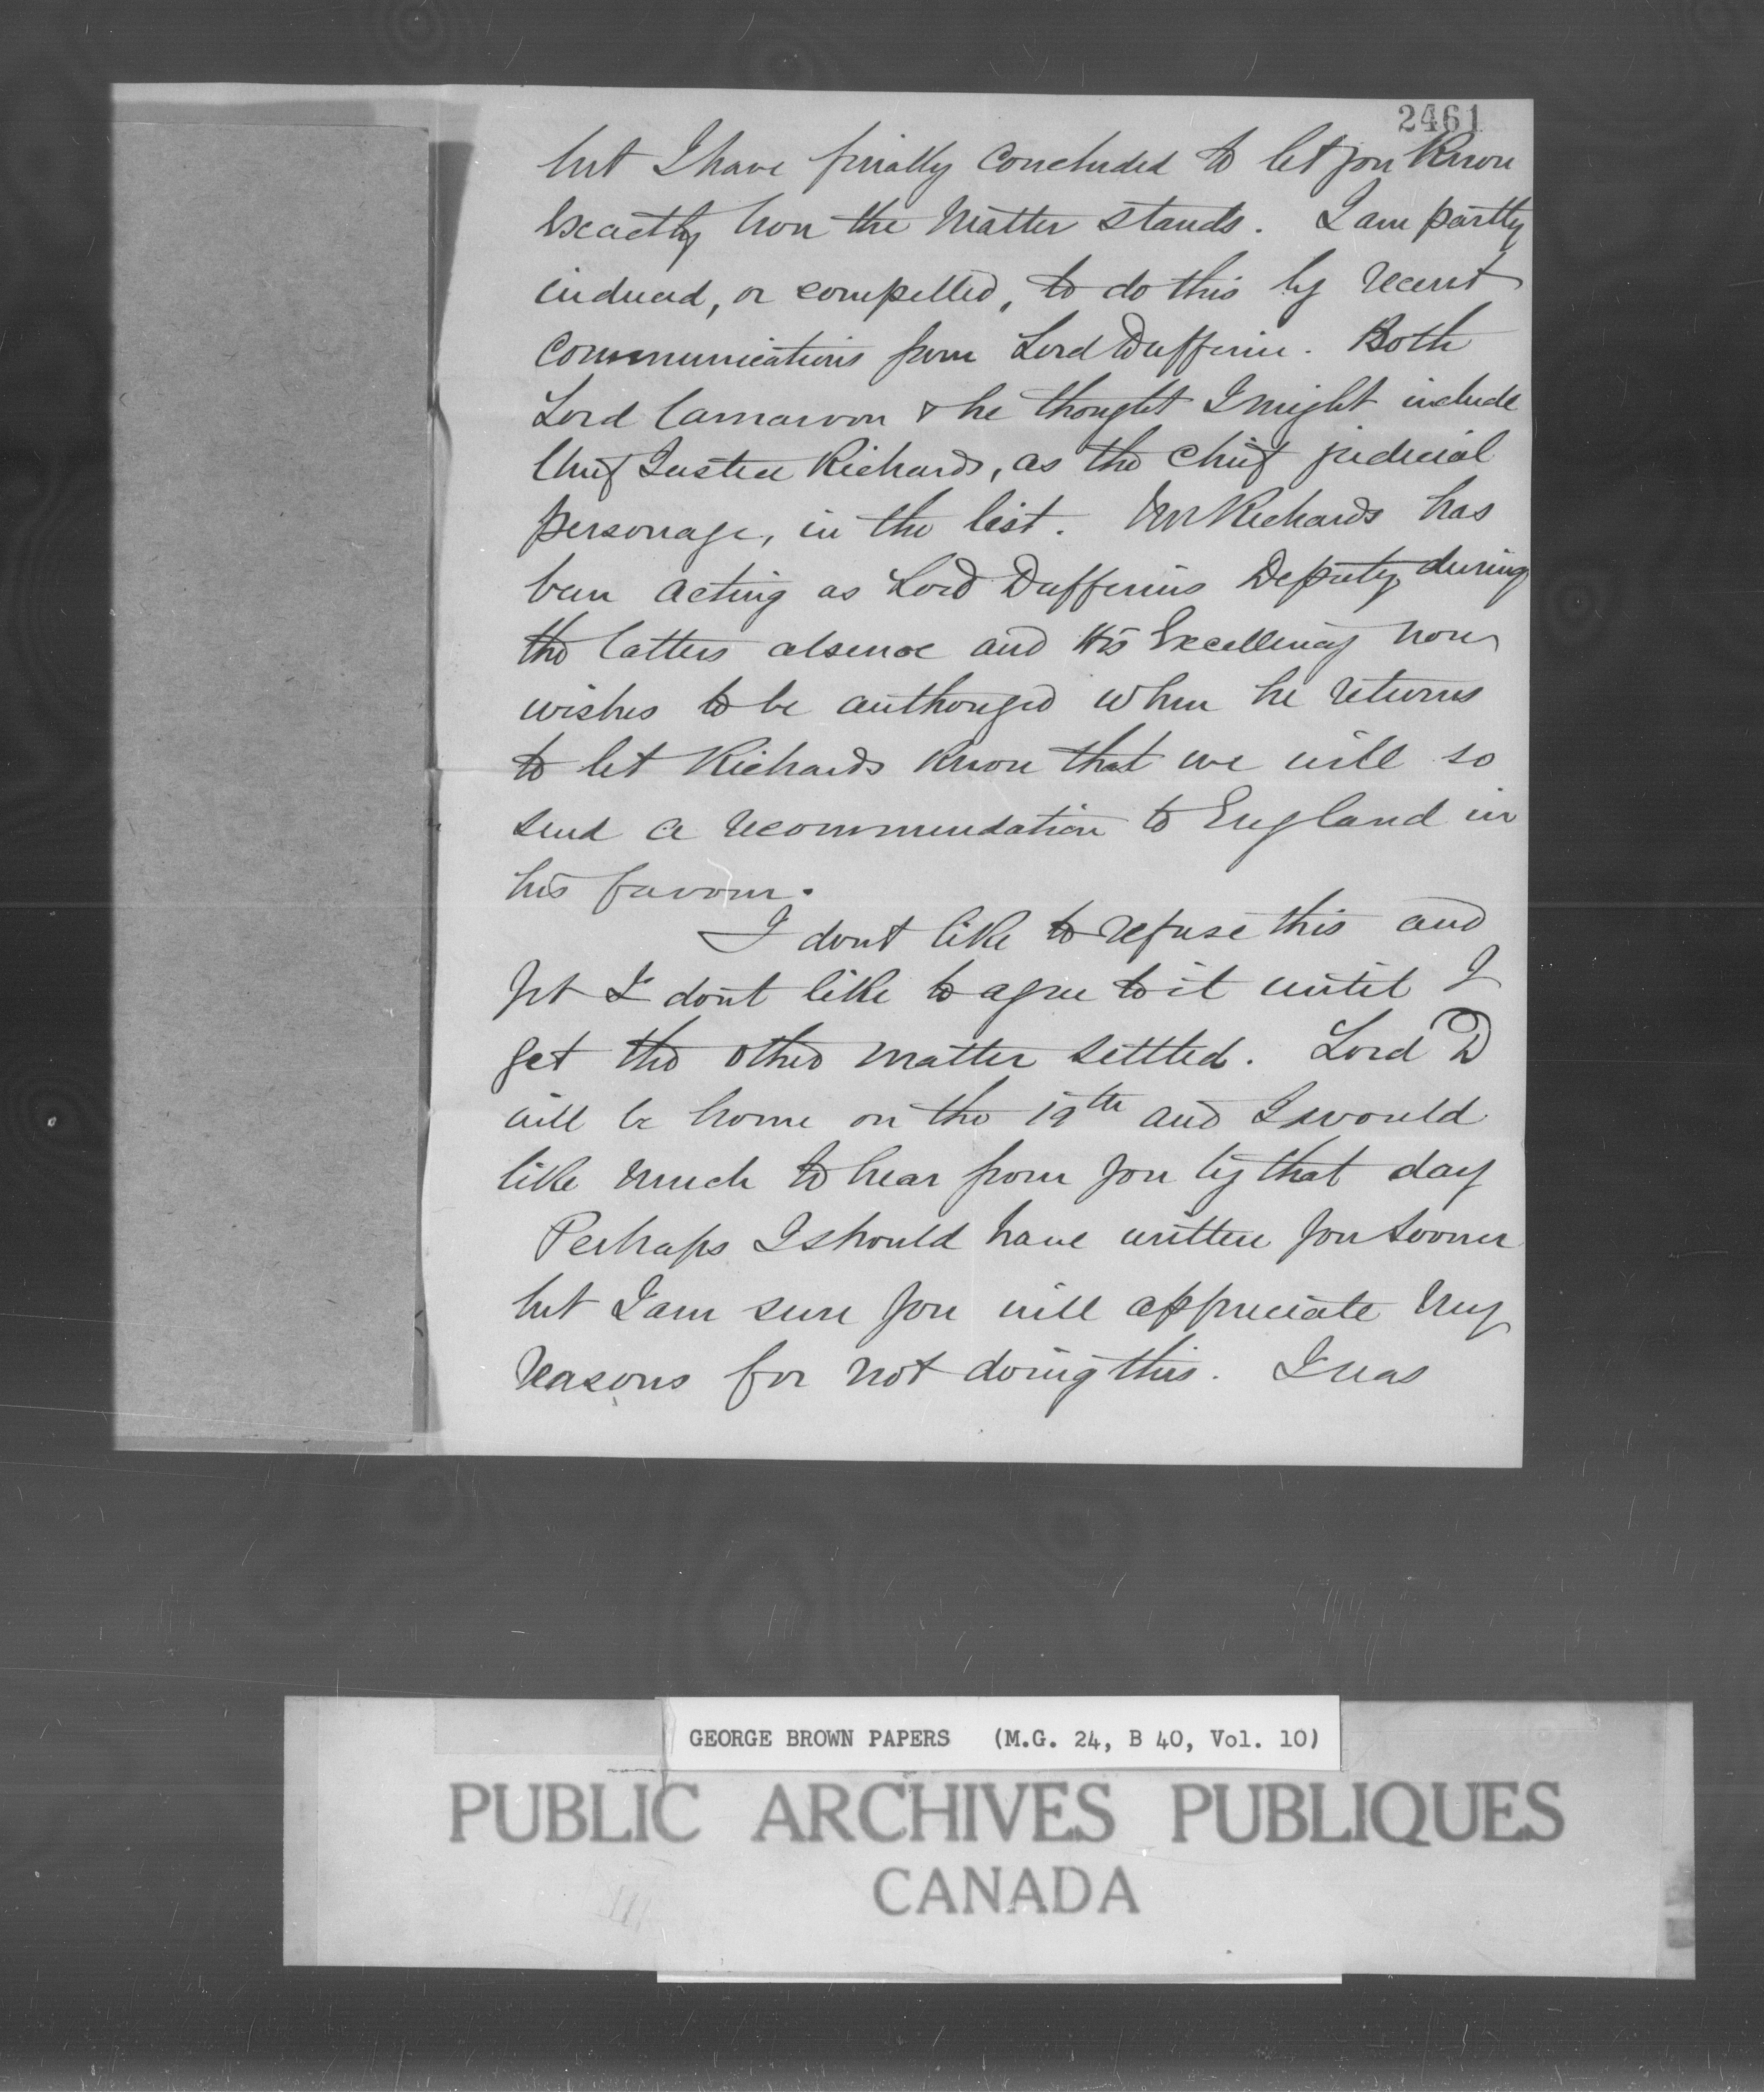 2461
but I have finally concluded to let you know
exactly how the matter stands. I am partly
induced, or compelled, to do this by recent
communications from Lord Dufferin. Both
Lord Carnarvon & he thought I might include
Chief Justice Richards, as the chief judicial
personage, in the list. Mr Richards has
been acting as Lord Dufferins Deputy during
the latters absence and His Excellency now
wishes to be authorized when he returns
to let Richards know that we will so
send a recommendation to England in
his favour.
I dont like to refuse this and
yet I dont like to agree to it until I
get the other matter settled. Lord D
will be home on the 19th and I would
like much to hear from you by that day
Perhaps I should have written you sooner
but I am sure you will appreciate my
reasons for not doing this. I was
GEORGE BROWN PAPERS (M.G. 24, B 40, Vol. 10)
PUBLIC ARCHIVES PUBLIQUES
CANADA